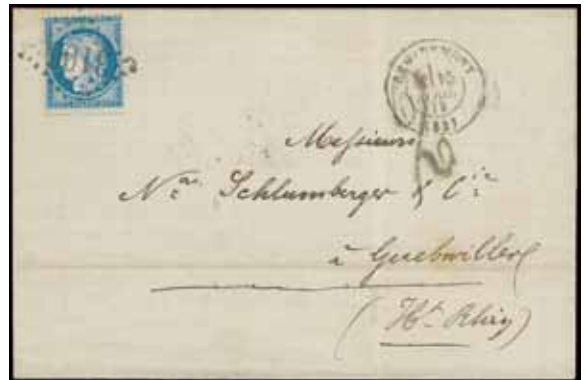 REMIREMONT
15
(88)
2
Messieurs
Nas Schlumberger & Cie
à Guebwiller
(Ht. Rhin)